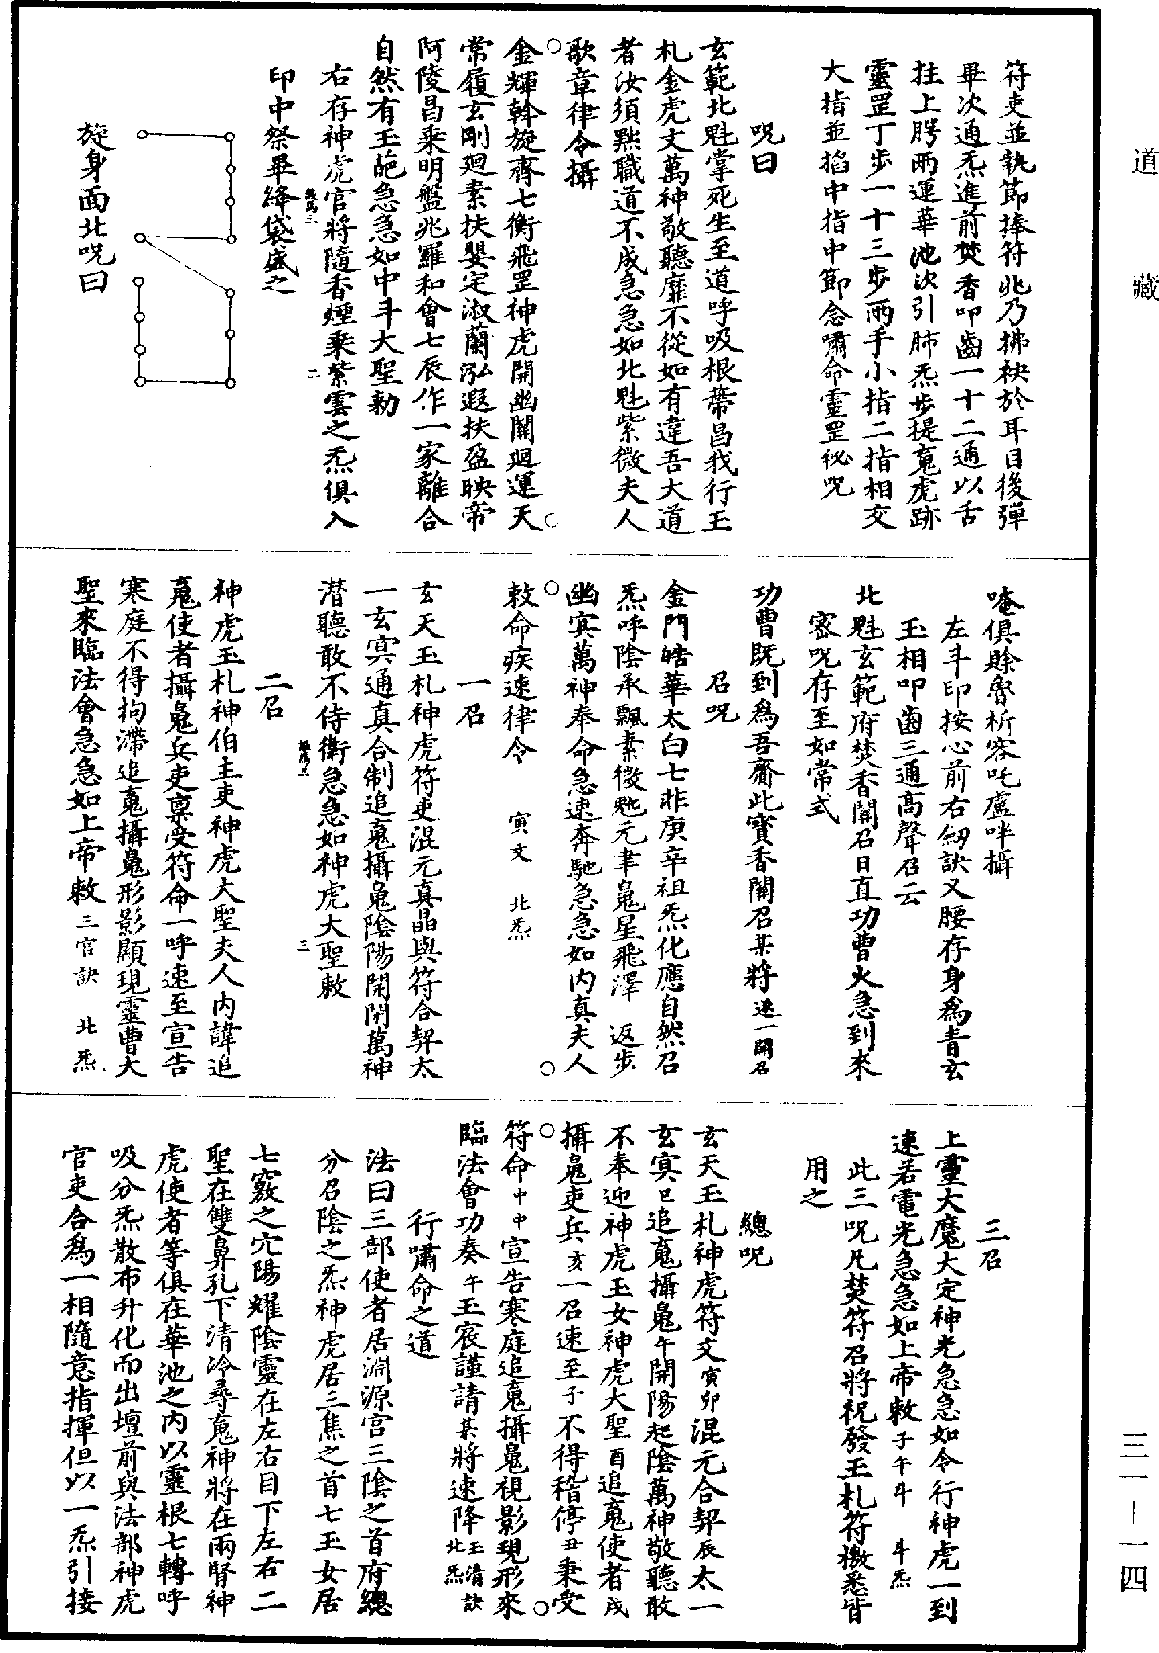 道藏
符吏並執節捧符兆乃拂袂於耳目後彈
畢次通炁進前焚香叩齒一十二通以舌
拄上腭兩運華池次引肺炁步提䰟虎跡
靈罡丁步一十三步兩手小指二指相交
大指並掐中指中節念嘯命靈罡祕咒
呪曰
玄範北魁掌死生至道呼吸根蔕昌我行玉
札金虎文萬神敬聽靡不從如有違吾大道
者汝須黜職道不成急急如北魁紫微夫人
歌章律令攝
○金輝斡旋齊七衡飛罡神虎開幽關迴運天○
常履玄剛迴素扶嬰定淑蘭泓遐扶盈映帝
阿陵昌乘明盤兆羅和會七辰作一家離合
自然有玉葩急急如中斗大聖勅
右存神虎官將隨香煙乘紫雲之炁俱入
印中祭畢絳袋盛之
旋身面北呪曰
唵俱賒魯析容吒盧吽攝
左斗印按心前右劒訣叉腰存身爲青玄
玉相叩齒三通高聲召云
北魁玄範府焚香關召日直功曹火急到來
密呪存至如常式
功曹旣到爲吾齎此寶香關召某將速一關召
召呪
金門皓華太白七非庚辛祖炁化應自然召
炁呼陰承飄素徵魤元丰䰠星飛澤 返步
幽冥萬神奉命急速奔馳急急如內真夫人
○敕命疾速律令 寅文 北炁○
一召
玄天玉札神虎符吏混元真晶與符合契太
一玄冥通真合制追䰟攝䰠陰陽開閉萬神
潛聽敢不侍衛急急如神虎大聖敕
二召
神虎玉札神伯主吏神虎大聖夫人內諱追
䰟使者攝䰠兵吏禀受符命一呼速至宣告
寒庭不得拘滯追䰟攝䰠形影顯現靈曹大
聖來臨法會急急如上帝敕三官訣 北炁
三召
上靈大魔大定神光急急如令行神虎一到
速若電光急急如上帝敕子午斗 斗炁
此三呪凡焚符召將祝發玉札符檄悉皆
用之
總呪
玄天玉札神虎符文寅卯混元合契辰太一
玄冥巳追䰟攝䰠午開陽起陰萬神敬聽敢
不奉迎神虎玉女神虎大聖酉追䰟使者戌
攝䰠吏兵亥一召速至子不得稽停丑秉受
○符命中中宣告寒庭追䰟攝䰠視影現形來○
臨法會功奏午玉宸謹請某將速降玉清訣北炁
行嘯命之道
法曰三部使者居淵源宮三陰之首府總
分召陰之炁神虎居三焦之首七玉女居
七竅之穴陽耀陰靈在左右目下左右二
聖在雙鼻孔下清冷尋䰟神將在兩腎神
虎使者等俱在華池之內以靈根七轉呼
吸分炁散布升化而出壇前與法部神虎
官吏合爲一相隨意指揮但以一炁引接
三一－一四